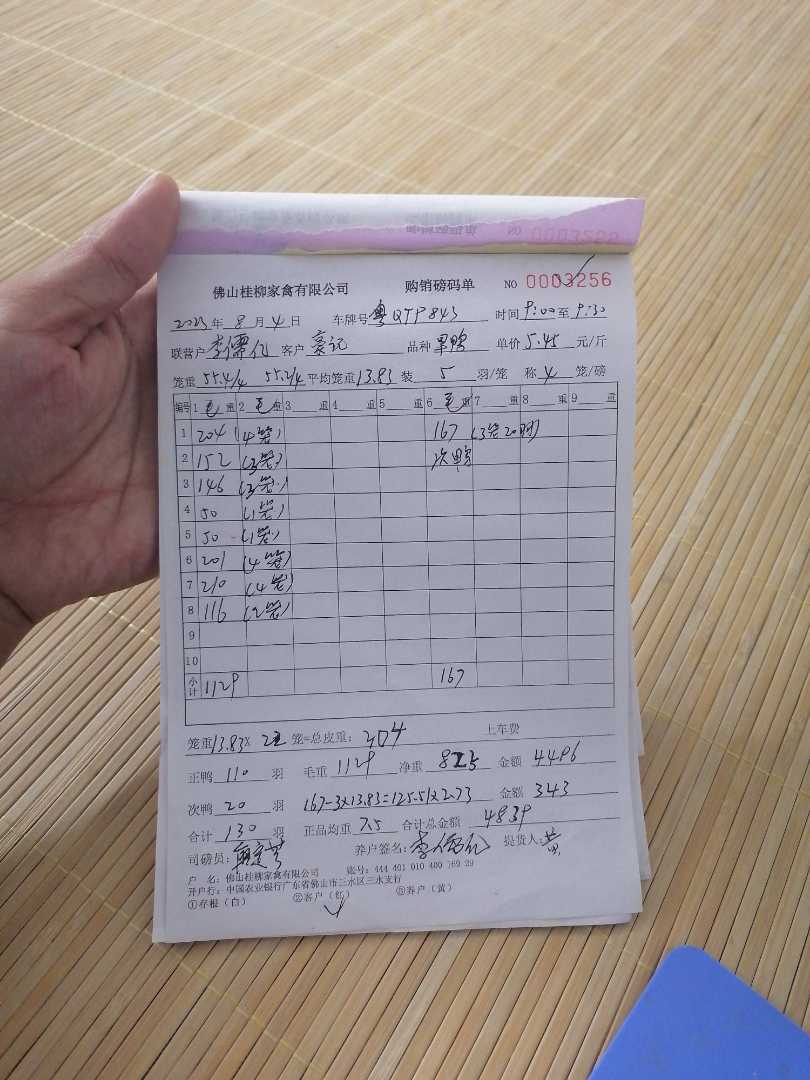 NO 0003500
佛山桂柳家禽有限公司 购销磅码单 NO 0003256
2023年 8月 4日 车牌号 粤QTP843 时间 9:00 至 9:30
联营户 李儒亿 客户 豪记 品种 单价 5.45 元/斤
笼重 55.4/4 55.2/4 平均笼重 13.83 装 5 羽/笼 称 4 笼/磅
编号 1 毛重 2 毛重 3 重 4 重 5 重 6 毛重 7 重 8 重 9 重
1 204 (4笼) 167 (3笼20羽)
2 152 (3笼) 次鸭
3 146 (3笼)
4 50 (1笼)
5 50 (1笼)
6 201 (4笼)
7 210 (4笼)
8 116 (2笼)
9
10
小计 1129 167
笼重 13.83 × 22 笼=总皮重: 304 上车费
正鸭 110 羽 毛重 1129 净重 825 金额 4496
次鸭 20 羽 167-3×13.83=125.51×2.73 金额 343
合计 130 羽 正品均重 7.5 合计总金额 4839
司磅员: 养户签名: 李儒亿 提货人: 黄
户 名: 佛山桂柳家禽有限公司 账号: 444 401 010 400 769 29
开户行: 中国农业银行广东省佛山市三水区三水支行
①存根(白) ②客户(红) ③养户(黄)